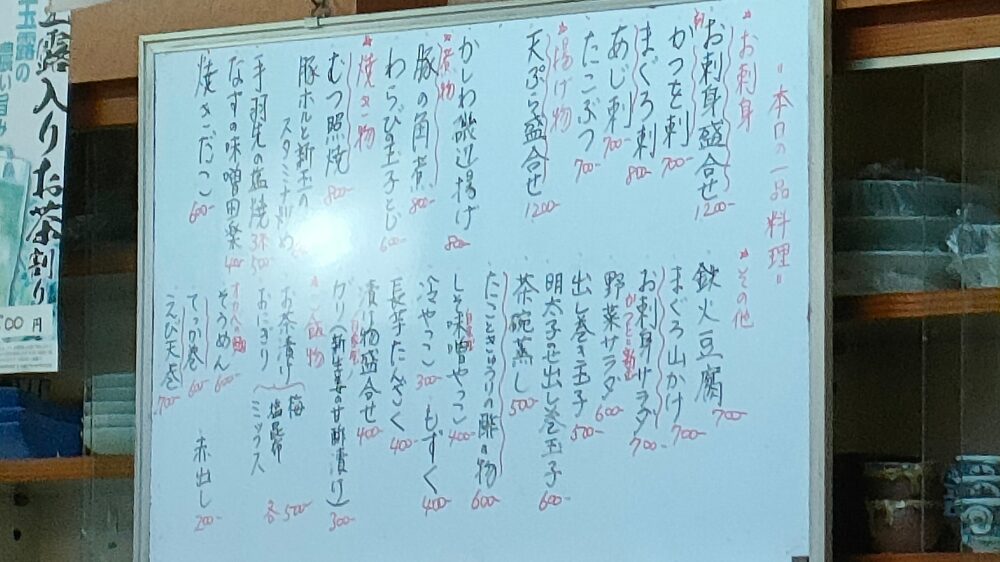 "本日の一品料理"
*お刺身
お刺身盛合せ 1200-
かつを刺 700-
まぐろ刺 800-
あじ刺 700-
たこぶつ 700-
*揚げ物
天ぷら盛合せ 1200-
かしわ磯辺揚げ 800-
*煮物
豚の角煮 800-
わらびの玉子とじ 600-
*焼き物
むつ照焼 800-
豚ホルと新玉の
スタミナ炒め
手羽先の塩焼 3本 500-
なすの味噌田楽 400-
焼きだこ 600-
*その他
鉄火豆腐 700-
まぐろ山かけ 700-
お刺身サラダ 700-
野菜サラダ 600-
出し巻き玉子 500-
明太子の出し巻玉子 600-
茶碗蒸し 500-
たこときゅうりの酢の物 600-
しそ味噌やっこ 400-
冷やっこ 300- もずく 400-
長芋たんざく 400-
漬け物盛合せ 400-
ガリ(新生姜の甘酢漬け) 300-
*ご飯物
お茶漬け
おにぎり
梅
塩昆布
ミックス
各500-
そうめん 600-
てっか巻 600-
えび天巻 700-
赤出し 200-
玉露の
濃い旨み
玉露入りお茶割り
500円